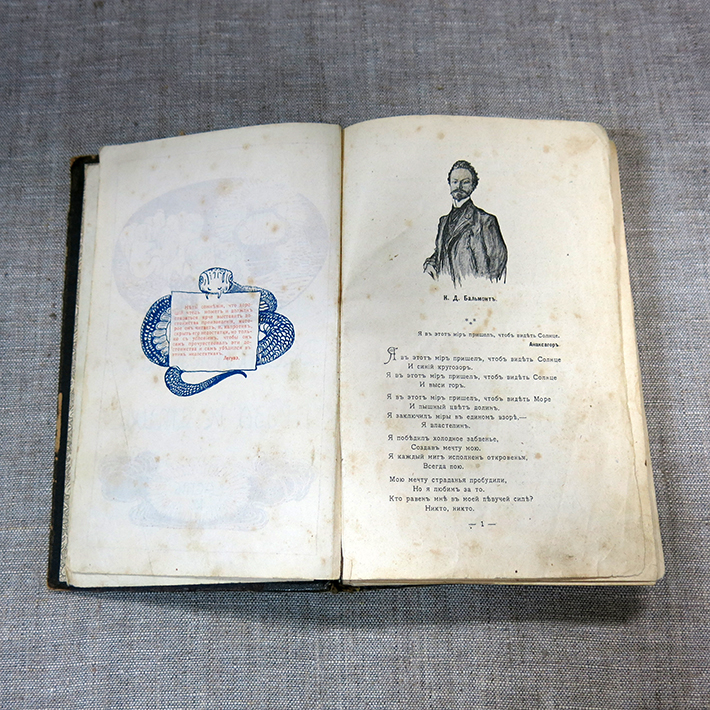 К. Д. Бальмонтъ.
Я въ этотъ міръ пришелъ, чтобъ видѣть Солнце.
Анаксагоръ
Я въ этотъ міръ пришелъ, чтобъ видѣть Солнце
И синій кругозоръ.
Я въ этотъ міръ пришелъ, чтобъ видѣть Солнце
И выси горъ.
Я въ этотъ міръ пришелъ, чтобъ видѣть Море
И пышный цвѣтъ долинъ.
Я заключилъ міры въ единомъ взорѣ,—
Я властелинъ.
Я побѣдилъ холодное забвенье,
Создавъ мечту мою.
Я каждый мигъ исполненъ откровенья,
Всегда пою.
Мою мечту страданья пробудили,
Но я любимъ за то.
Кто равенъ мнѣ въ моей пѣвучей силѣ?
Никто, никто.
— 1 —